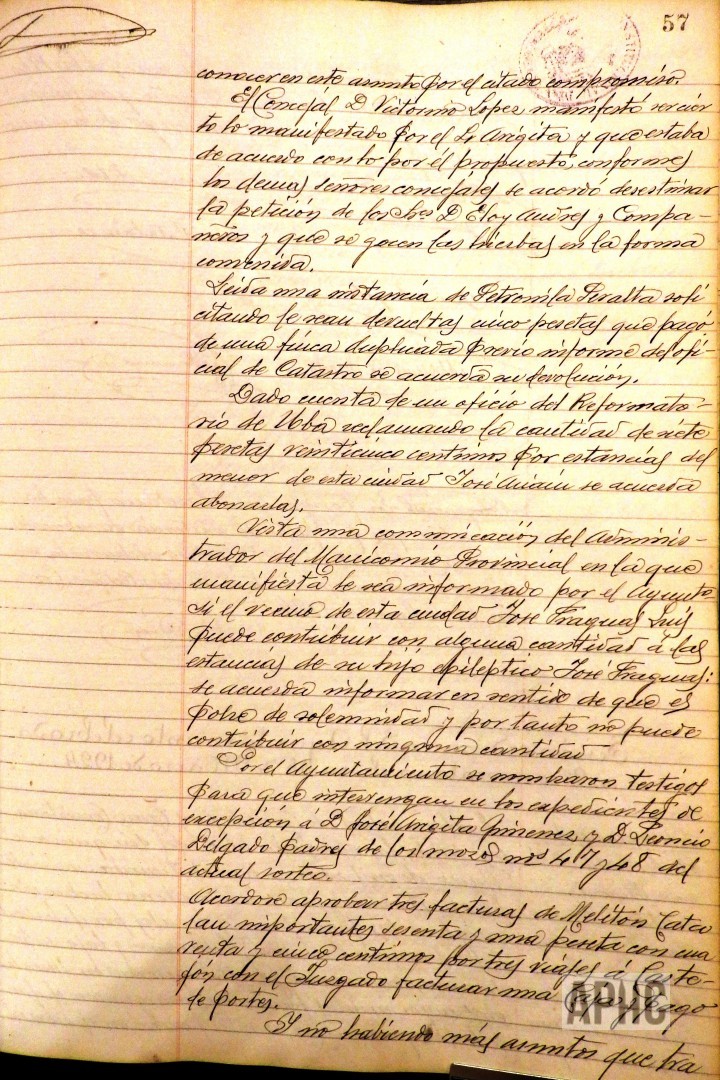 57
conocer en este asunto por el citado compromiso.
El Concejal D. Victorino Lopez manifestó ser cier
to lo manifestado por el Sr. Arigita y que estaba
de acuerdo con lo por él propuesto, conformes
los demas señores concejales se acordó desestimar
la petición de los Srs. D. Eloy Andres y Compa-
ñeros y que se gocen las hierbas en la forma
convenida.
Leida una instancia de Petronila Peralta soli
citando le sean devueltas cinco pesetas que pagó
de una finca duplicada previo informe del ofi
cial de Catastro se acuerda su devolución.
Dado cuenta de un oficio del Reformato-
rio de reclamando la cantidad de siete
pesetas veinticinco centimos por estancias del
menor de esta ciudad José se acuerda
abonarlas.
Vista una comunicación del Adminis-
trador del Manicomio Provincial en la que
manifiesta le sea informado por el Ayunto
si el vecino de esta ciudad José Fraguas Luis
puede contribuir con alguna cantidad á las
estancias de su hijo epileptico José Fraguas:
se acuerda informar en sentido de que es
pobre de solemnidad y por tanto no puede
contribuir con ninguna cantidad
Por el Ayuntamiento se nombraron testigos
para que intervengan en los expedientes de
excepcion á D. José Arigita Gimenez y D. Leoncio
Delgado padres de los mozos nos 47 y 48 del
actual sorteo.
Acordose aprobar tres facturas de Melitón Cata
lan importantes sesenta y una peseta con cua
renta y cinco centimos por tres viajes á Caste-
jón con el Juzgado facturar una y pago
de portes.
Y no habiendo más asuntos que tra
APHC